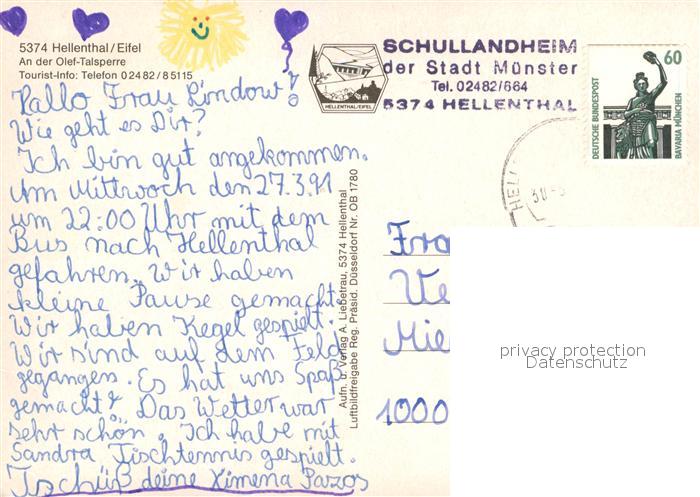 5374 Hellenthal/Eifel
An der Olef-Talsperre
Tourist-Info: Telefon 02482/85115
Hallo Frau Lindow!
Wie geht es Dir?
Ich bin gut angekommen.
Am Mittwoch den 27.3.91
um 22:00 Uhr mit dem
Bus nach Hellenthal
gefahren. Wir haben
kleine Pause gemacht.
Wir haben Kegel gespielt.
Wir sind auf dem Feld
gegangen. Es hat uns Spaß
gemacht! Das Wetter war
sehr schön. Ich habe mit
Sandra Tischtennis gespielt.
Tschüß deine Ximena Pazos
Aufn. u. Verlag A. Liebetrau, 5374 Hellenthal
Luftbildfreigabe Reg. Präsid. Düsseldorf Nr. OB 1780
HELLENTHAL/EIFEL
SCHULLANDHEIM
der Stadt Münster
Tel. 02482/664
5374 HELLENTHAL
HELL
30.-3
60
DEUTSCHE BUNDESPOST
BAVARIA MÜNCHEN
Fra
Ve
Mie
1000
privacy protection
Datenschutz